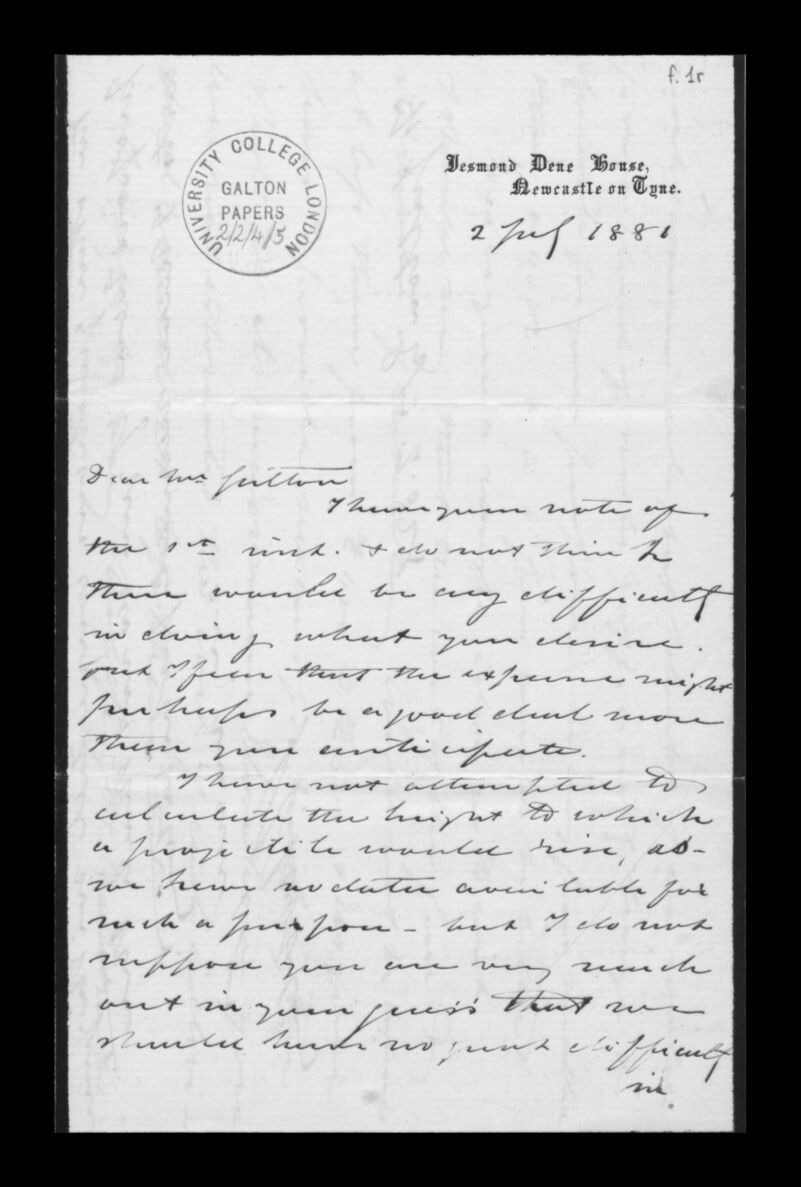 f. 1r
UNIVERSITY COLLEGE LONDON
GALTON
PAPERS
2/2/4/5
Jesmond Dene House,
Newcastle on Tyne.
2 July 1881
Dear Mr Galton
I have your note of
the 1st inst. & do not think
there would be any difficulty
in doing what you desire.
but I fear that the expense might
perhaps be a good deal more
than you anticipate.
I have not attempted to
calculate the height to which
a projectile would rise, as
we have no data available for
such a purpose - but I do not
suppose you are very much
out in your guess that we
should have no great difficulty
in